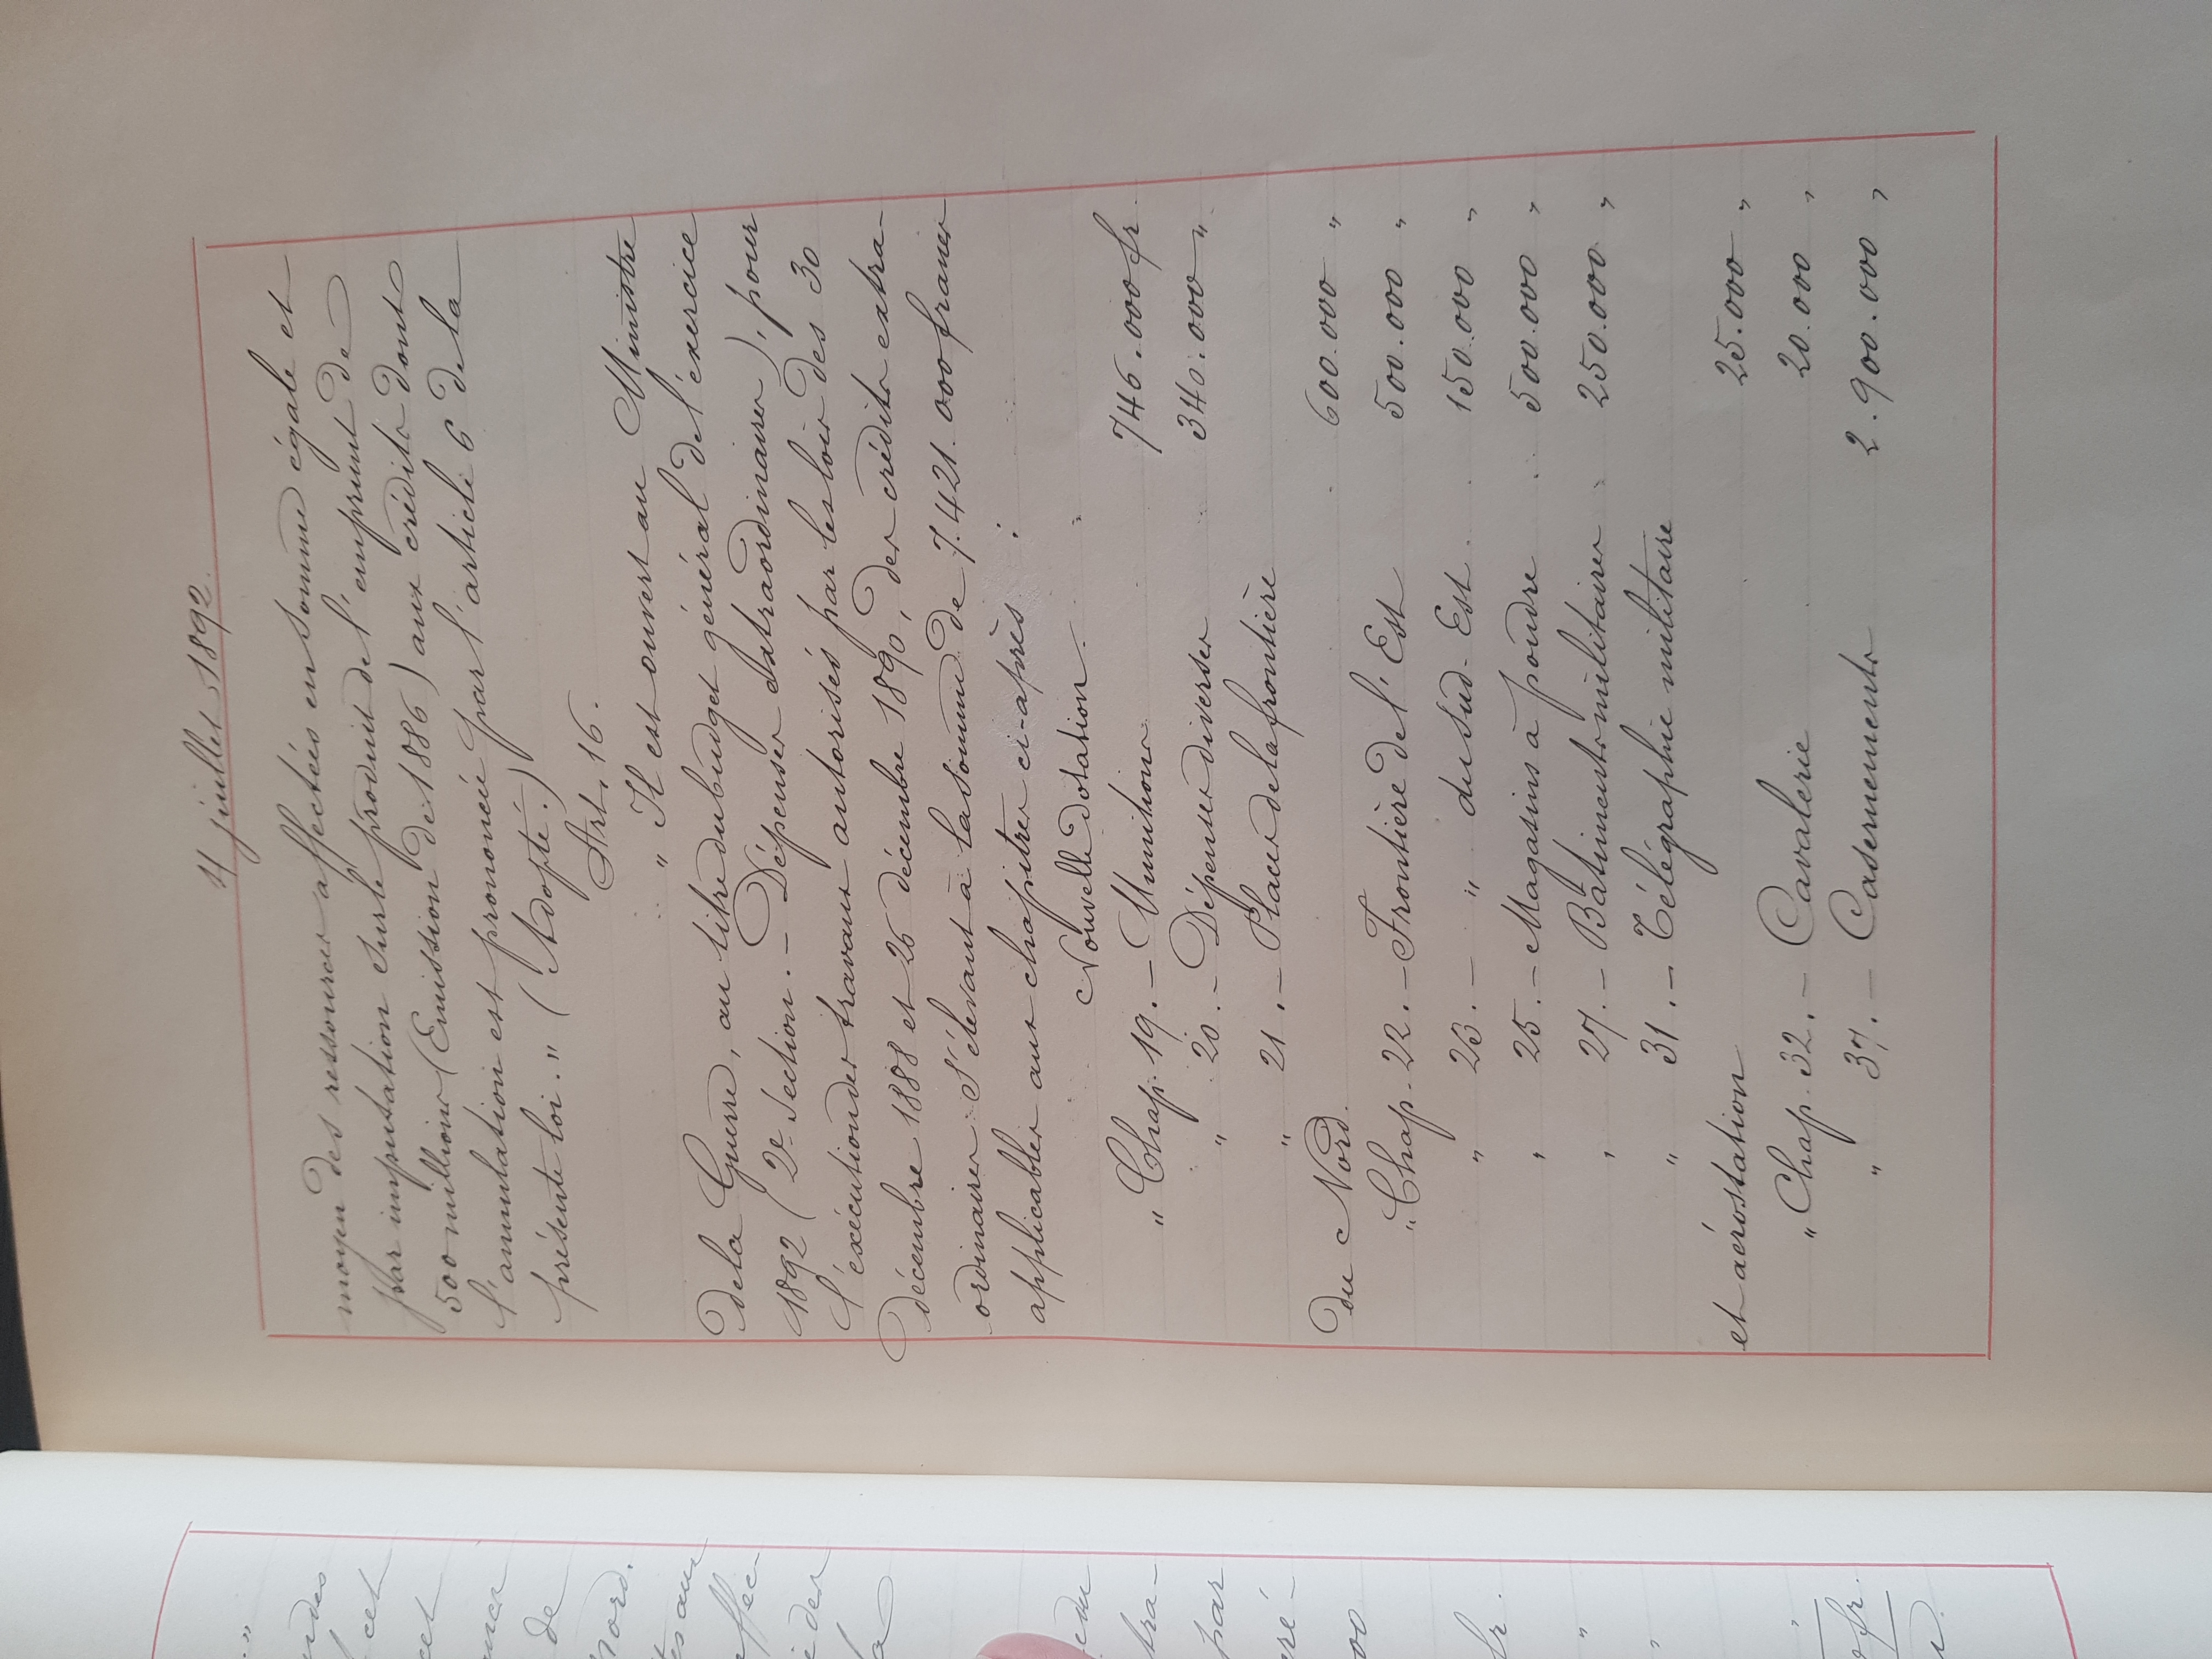 4 juillet 1892.
moyen des ressources affectées en somme égale et
par imputation sur le produit de l'emprunt de
500 millions (Emission de 1886) aux crédits dont
l'annulation est prononcée par l'article 6 de la
présente loi. " (Adopté.)
Art. 16.
" Il est ouvert au Ministre
de la Guerre, au titre du budget général de l'exercice
1892 (2e Section. - Dépenses extraordinaires), pour
l'exécution des travaux autorisés par les lois des 30
décembre 1888 et 26 décembre 1890, des crédits extra-
ordinaires s'élevant à la somme de 7.421.000 francs
applicables aux chapitres ci-après :
Nouvelle dotation.
" Chap. 19. - Munitions 746.000 fr.
" 20. - Dépenses diverses 340.000 "
" 21. - Places de la frontière
du Nord. 600.000 "
" Chap. 22. - Frontière de l'Est 500.000 "
" 23. - " du Sud-Est. 150.000 "
" 25. - Magasins à poudre 500.000 "
" 27. - Bâtiments militaires 250.000 "
" 31. - Télégraphie militaire
et aérostation 25.000 "
" Chap. 32. - Cavalerie 20.000 "
" 37. - Casernements 2.900.000 "